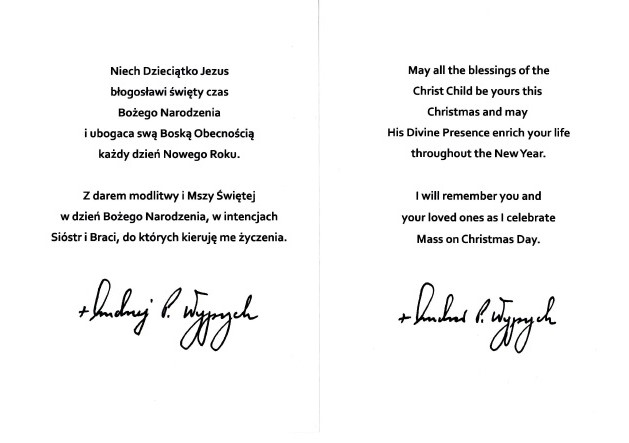 Niech Dzieciątko Jezus
błogosławi święty czas
Bożego Narodzenia
i ubogaca swą Boską Obecnością
każdy dzień Nowego Roku.
Z darem modlitwy i Mszy Świętej
w dzień Bożego Narodzenia, w intencjach
Sióstr i Braci, do których kieruję me życzenia.
+ Andrzej P. Wypych
May all the blessings of the
Christ Child be yours this
Christmas and may
His Divine Presence enrich your life
throughout the New Year.
I will remember you and
your loved ones as I celebrate
Mass on Christmas Day.
+ P. Wypych